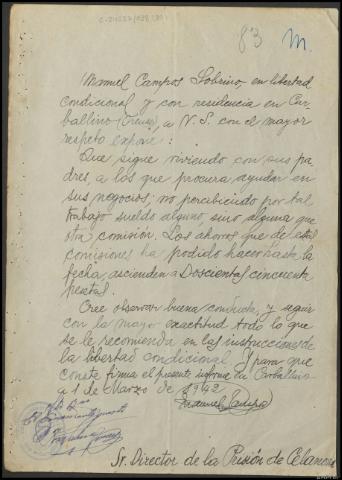 83 M.
Manuel Campos Sobrino, en libertad
condicional y con residencia en Car-
ballino (Orense), a V. S. con el mayor
respeto expone:
Que sigue viviendo con sus pa
dres, a los que procura ayudar en
sus negocios; no percibiendo por tal
trabajo sueldo alguno, sino alguna que
otra comisión. Los ahorros que de estas
comisiones ha podido hacer hasta la
fecha, ascienden a Doscientas cincuenta
pesetas.
Cree observar buena conducta, y seguir
con la mayor exactitud todo lo que
se le recomienda en las instrucciones de
la libertad condicional. Y para que
conste firma el presente informe en Carballino
a 1 de Marzo de 1942
Manuel Campos
Sr. Director de la Prisión de Celanova